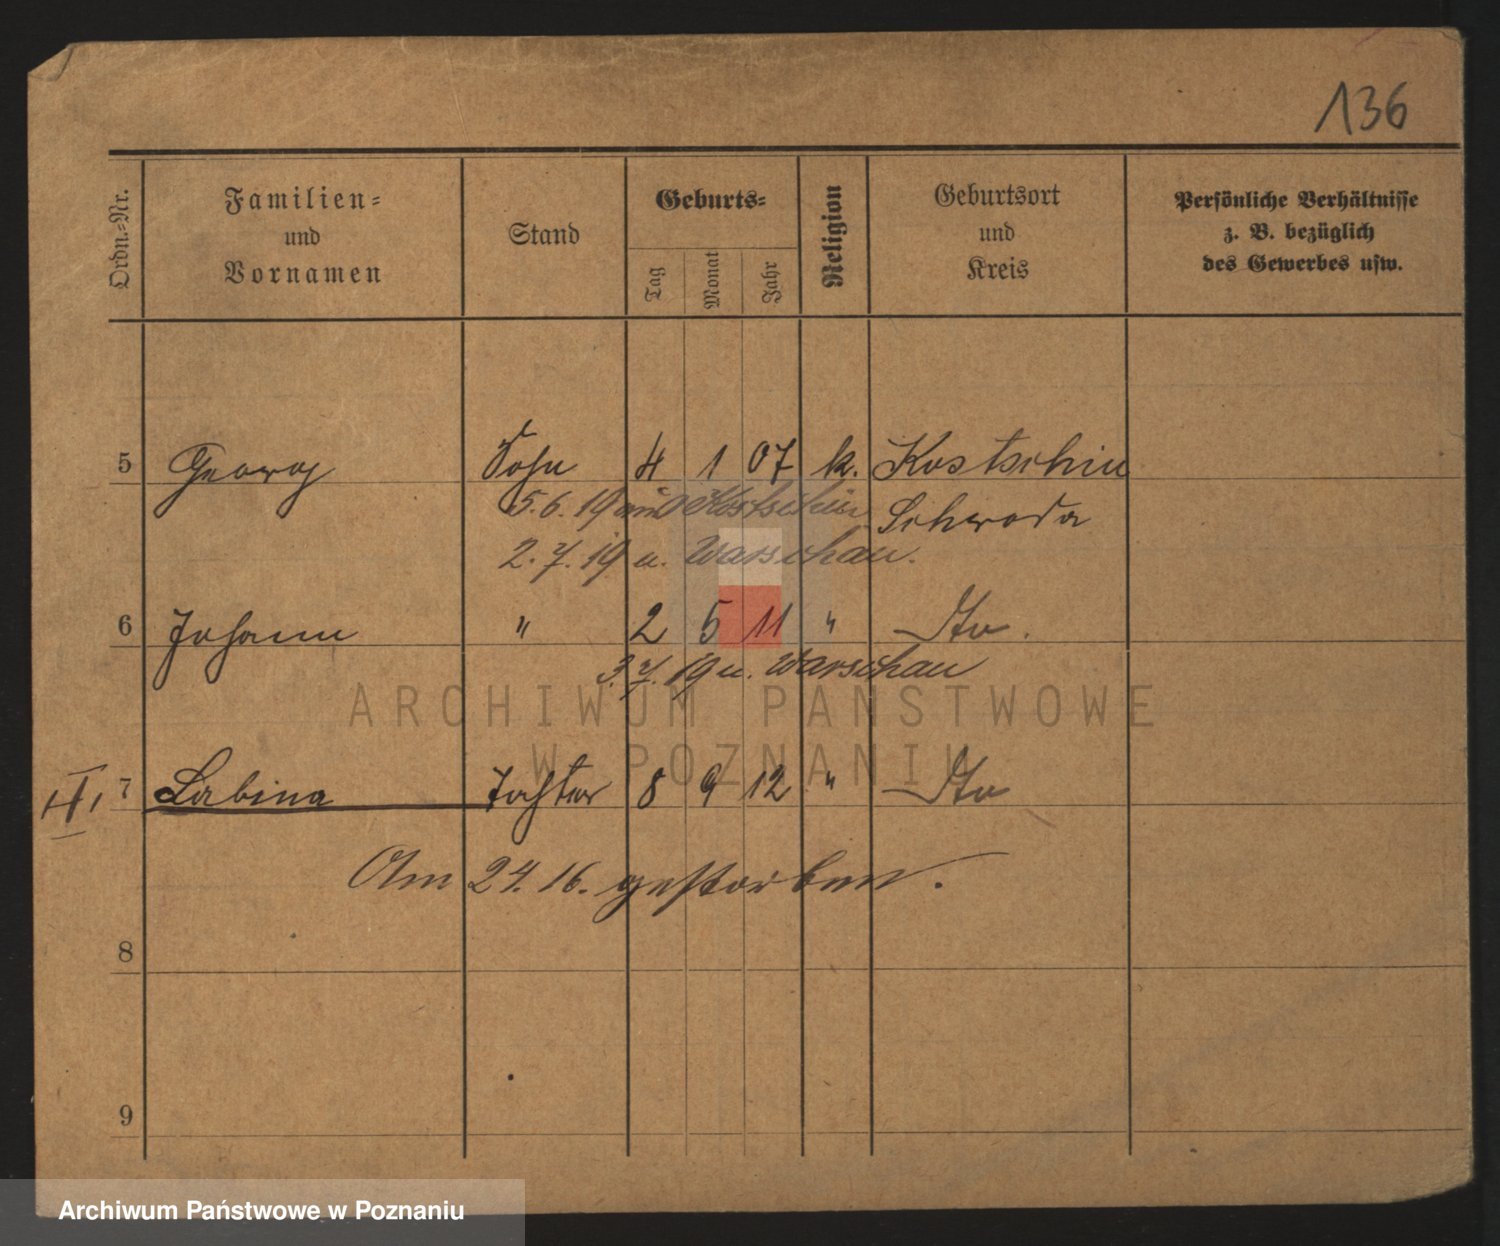 136
Ordn.-Nr.
Familien-
und
Vornamen
Stand
Geburts-
Tag
Monat
Jahr
Religion
Geburtsort
und
Kreis
Persönliche Verhältnisse
z. B. bezüglich
des Gewerbes usw.
5 Georg Sohn 4 1 07 k. Kostschin
5.6.19 Kostschin Schroda
2.7.19 n. Warschau.
6 Johann " 2 5 11 " Do.
3.7.19 n. Warschau
ARCHIWUM PAŃSTWOWE
W POZNANIU
7 Sabina Tochter 8 9 12 " Do
Am 24.16. gestorben.
8
9
Archiwum Państwowe w Poznaniu